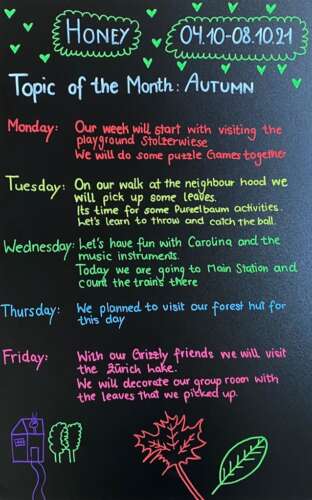 Honey
04.10-08.10.21
Topic of the Month: Autumn
Monday: Our week will start with visiting the
playground Stolzerwiese
We will do some puzzle Games together
Tuesday: On our walk at the neighbour hood we
will pick up some leaves.
Its time for some Purzelbaum activities.
Let's learn to throw and catch the ball.
Wednesday: Let's have fun with Carolina and the
music instruments.
Today we are going to Main Station and
count the trains there
Thursday: We planned to visit our forest hut for
this day
Friday: With our Grizzly friends we will visit
the Zürich Lake.
We will decorate our group room with
the leaves that we picked up.